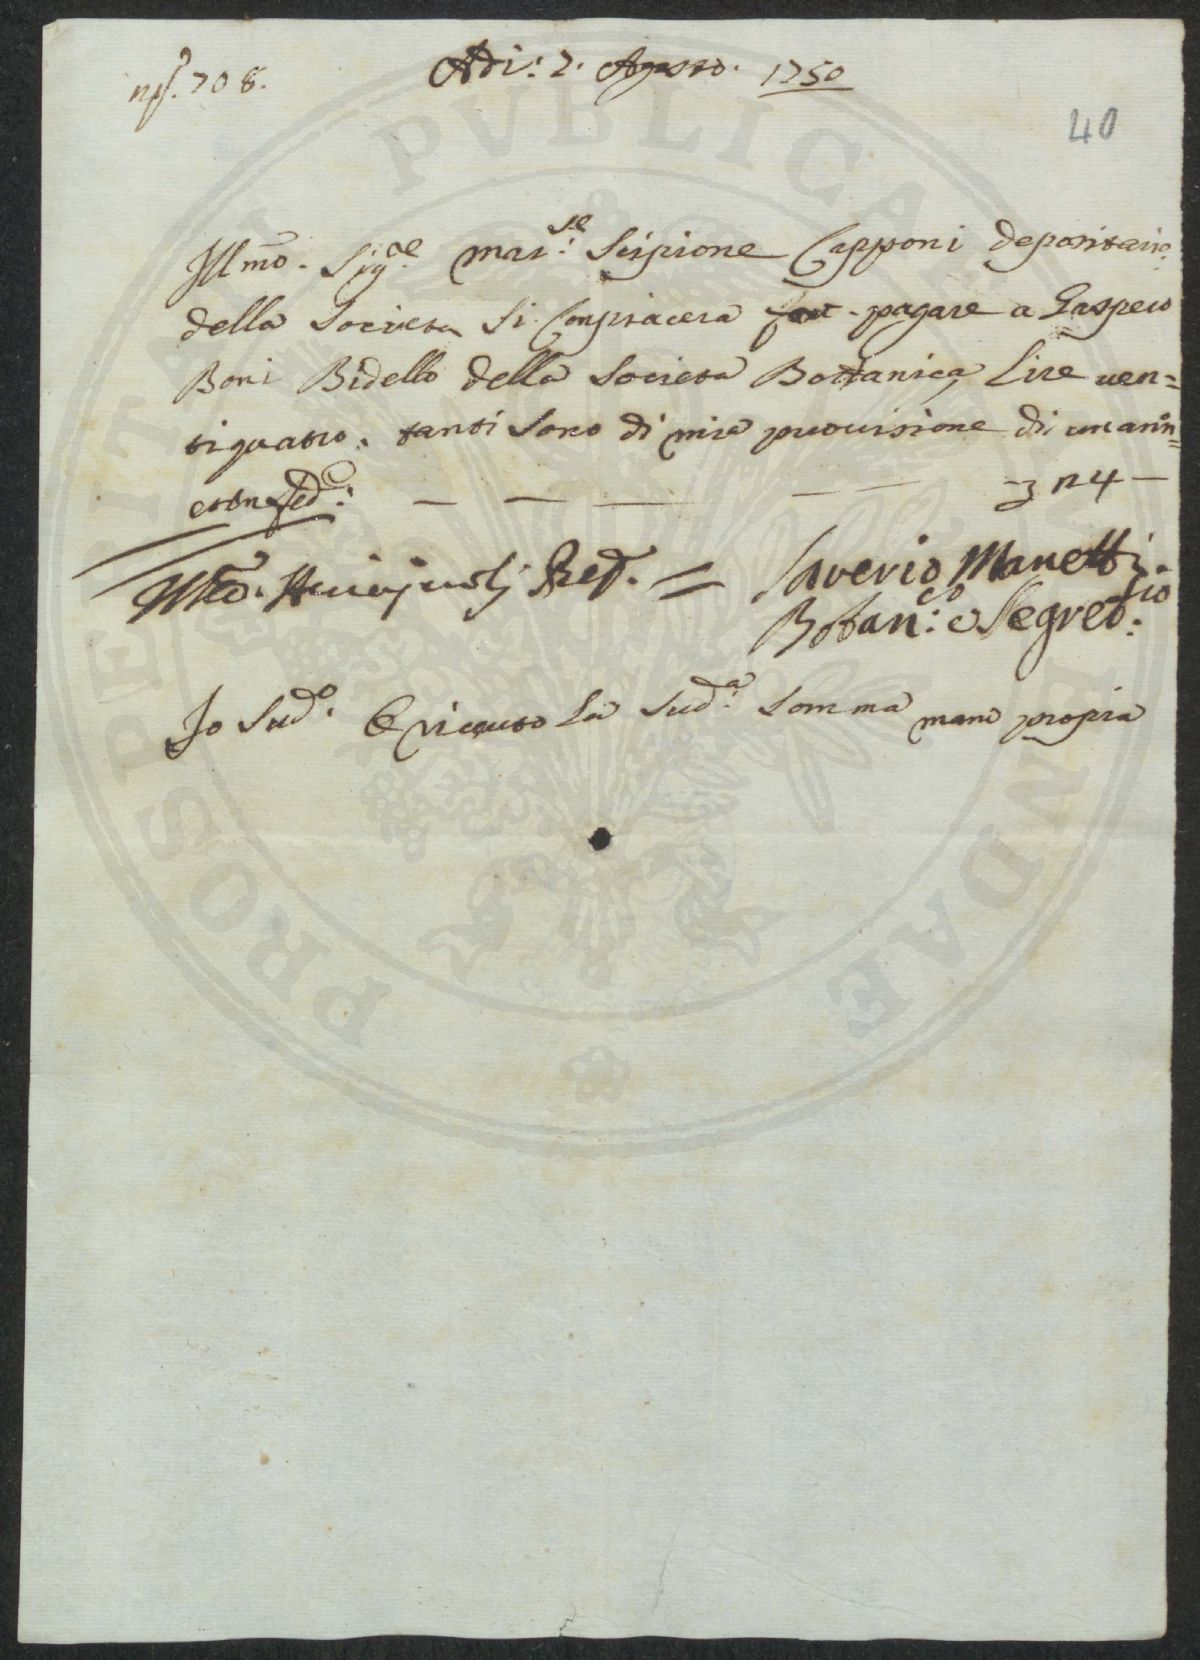 708.
Adi: 2. Agosto. 1750
40
Illmo. Sig.re Mar:se Scipione Capponi depositario
della Societa Si Compiacera far pagare a Gaspero
Boni Bidello della Societa Bottanica, Lire uen=
tiquatro, tanti sono di mia prouisione di un ann=
24 —
Saverio Manetti
Botan:co e Segret:rio
Io Sud.o O riceuto La Sud:a Somma mano propria
PROSPERITATI PVBLICAE AVGENDAE